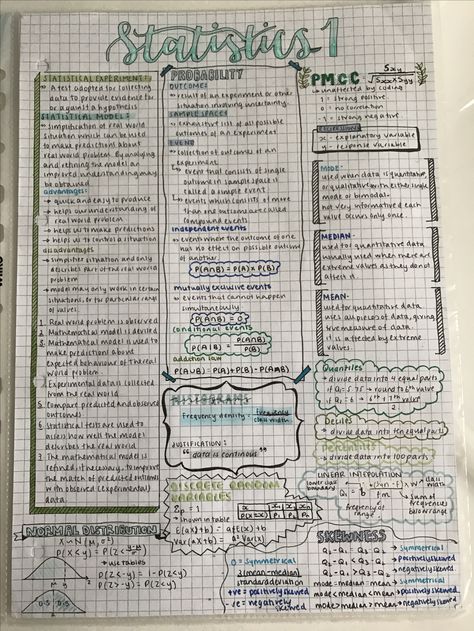 Statistics 1
STATISTICAL EXPERIMENT:
A test adopted for collecting
data to provide evidence for
or against a hypothesis
STATISTICAL MODEL:
simplification of real world
situation which can be used
to make predictions about
real world problem. By analysing
and refining the model an
improved understanding may
be obtained
advantages:
quick and easy to produce
helps our understanding of
real world problem
helps us to make predictions
helps us to control a situation
disadvantages
simplifies situation and only
describes part of the real world
problem
model may only work in certain
situations, or for particular range
of values
1 Real world problem is observed
2 Mathematical model is devised
3 Mathematical model is used to
make predictions about
expected behaviour of the real
world problem
4 Experimental data is collected
from the real world
5 Compare predicted and observed
outcomes
6 Statistical tests are used to
assess how well the model
describes the real world
7 The mathematical model is
refined if necessary, to improve
the match of predicted outcomes
with observed (experimental)
data.
PROBABILITY
OUTCOME:
result of an experiment or other
situation involving uncertainty.
SAMPLE SPACE:
exhaustive list of all possible
outcomes of an experiment
EVENT
collection of outcomes of an
experiment
event that consists of single
outcome in sample space is
called a simple event
events which consists of more
than one outcome are called
compound events
independent events
events where the outcome of one
has no effect on possible outcome
of another
P(A∩B) = P(A) × P(B)
mutually exclusive events
events that cannot happen
simultaneously
P(A∩B) = 0
conditional events
P(A|B) = P(A∩B)/P(B)
addition law
P(A∪B) = P(A) + P(B) - P(A∩B)
HISTOGRAMS
Frequency density = frequency/class width
JUSTIFICATION:
"data is continuous"
DISCRETE RANDOM
VARIABLES
Σp = 1
shown in table
E(aX+b) = aE(X)+b
Var(aX+b) = a² Var(X)
P.M.C.C
Sxy/√SxxSyy
unaffected by coding
1 = strong positive
0 = no correlation
-1 = strong negative
x - explanatory variable
y - response variable
MODE:
used when data is quantitative,
or qualitative with either single
mode or bimodal
not very informative if each
value occurs only once
MEDIAN
used for quantitative data
usually used when there are
extreme values as they do not
affect it
MEAN
used for quantitative data
uses all pieces of data, giving
true measure of data
it is affected by extreme
values
Quantiles
divide data into 4 equal parts
Deciles
divide data into ten equal parts
Percentiles
divide data into 100 parts
LINEAR INTERPOLATION
lower class
boundary
class
width
sum of
frequencies
below range
frequency of
range
NORMAL DISTRIBUTION
use tables
P(Z<-y) = 1 - P(Z<y)
P(Z>-y) = P(Z<y)
0.5 0.5
0 = symmetrical
3(mean-median)
standard deviation
+ve = positively skewed
-ve = negatively
skewed
SKEWNESS
Q₂-Q₁ = Q₃-Q₂ → symmetrical
Q₂-Q₁ < Q₃-Q₂ → positively skewed
Q₂-Q₁ > Q₃-Q₂ → negatively skewed
mode = median = mean → symmetrical
mode < median < mean → positively skewed
mode > median > mean → negatively skewed